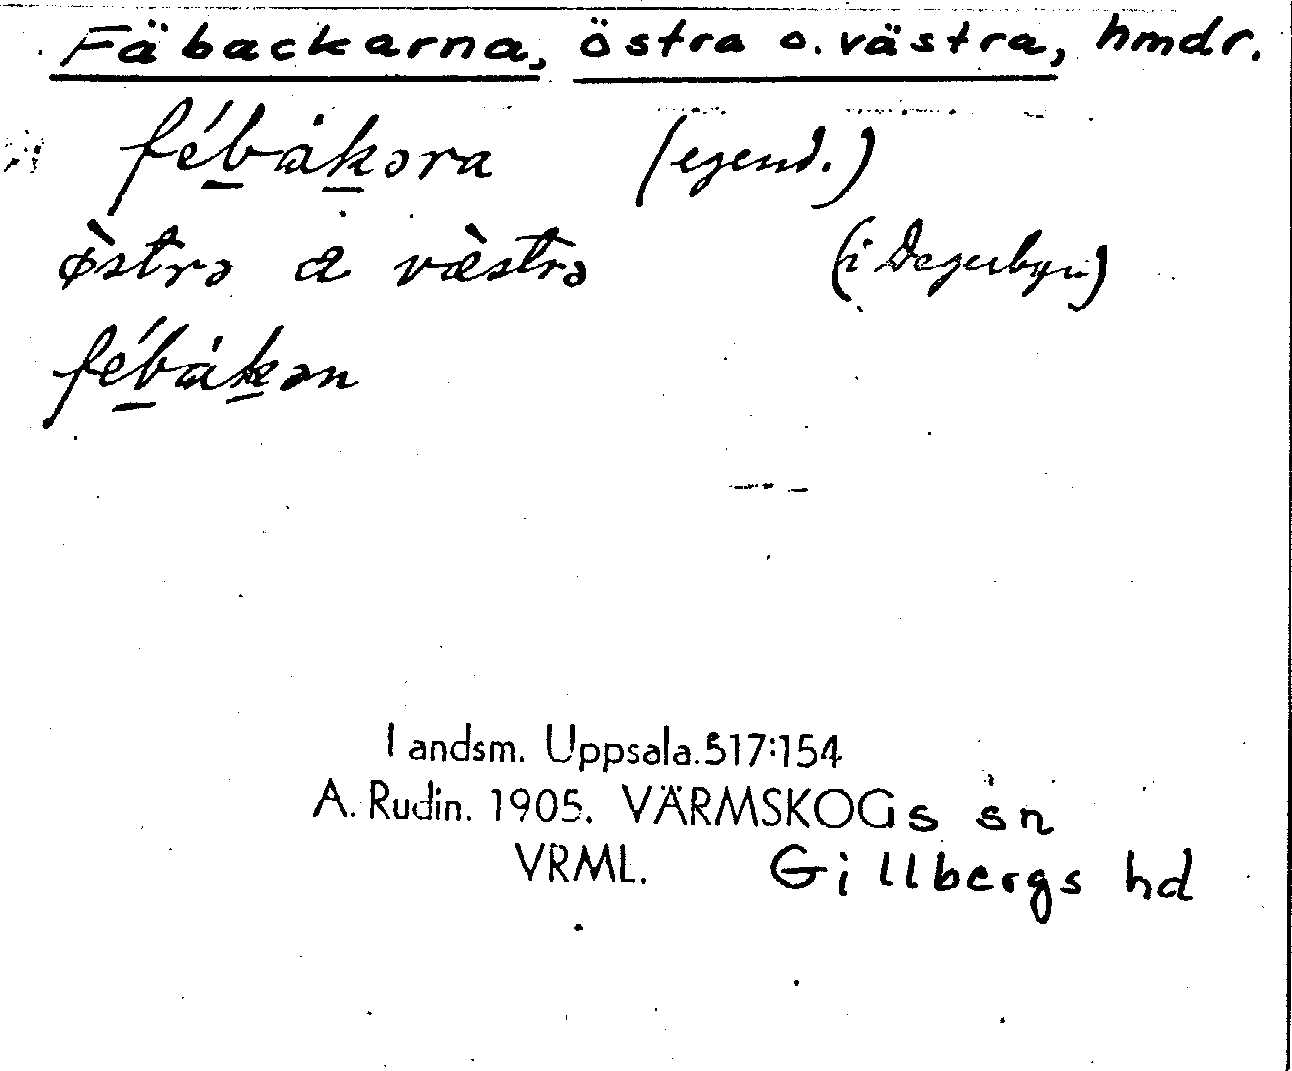 Fäbackarna, östra o. västra, hmdr.
fébákəra (egend.)
ø̀strə a væ̀strə (i Degerbyn)
fébákən
Landsm. Uppsala.517:154
A. Rudin. 1905. VÄRMSKOGs sn
VRML. Gillbergs hd